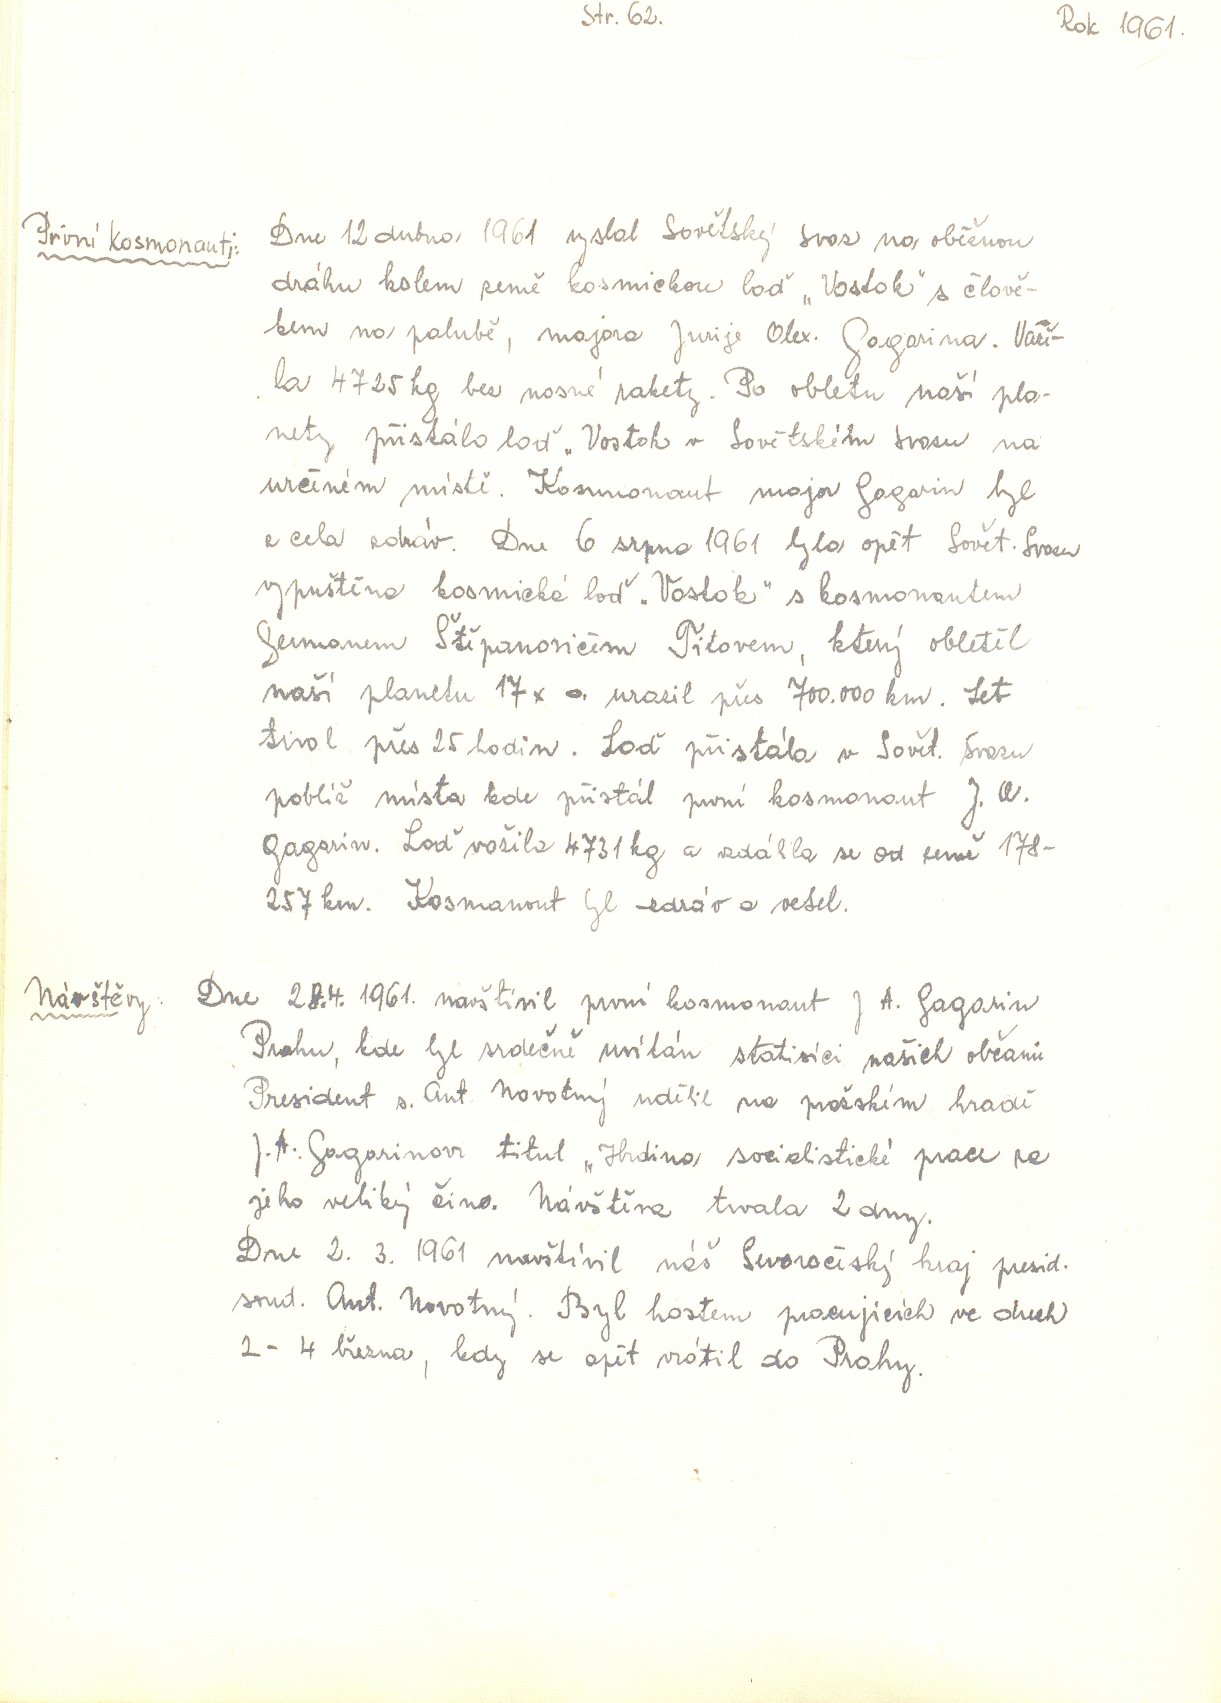 Str. 62.
Rok 1961.
První kosmonauti:
Dne 12 dubna 1961 vyslal Sovětský svaz na oběžnou
dráhu kolem země kosmickou loď „Vostok" s člově-
kem na palubě, majora Jurije Olex. Gagarina. Váži-
la 4725 kg bez nosné rakety. Po obletu naší pla-
nety přistála loď „Vostok v Sovětském svazu na
určeném místě. Kosmonaut major Gagarin byl
z cela zdráv. Dne 6 srpna 1961 byla opět Sovět. Svazu
vypuštěna kosmická loď „Vostok" s kosmonautem
Germanem Štěpanovičem Titovem, který obletěl
naší planetu 17 x a urazil přes 700.000 km. Let
trval přes 25 hodin. Loď přistála v Sovět. svazu
poblíž místa kde přistál první kosmonaut J. A.
Gagarin. Loď vážila 4731 kg a vzdálila se od země 178-
257 km. Kosmanout byl zdráv a vesel.
Návštěvy:
Dne 28.4. 1961. navštívil první kosmonaut J A. Gagarin
Prahu, kde byl srdečně uvítán statisíci našich občanů
President s. Ant. Novotný udělil na pražském hradě
J. A. Gagarinovi titul „Hrdina socialistické prace za
jeho veliký čin. Návštěva trvala 2 dny.
Dne 2. 3. 1961 navštívil náš Severočeský kraj presid.
soud. Ant. Novotný. Byl hostem pracujících ve dnech
2 - 4 března, kdy se opět vrátil do Prahy.